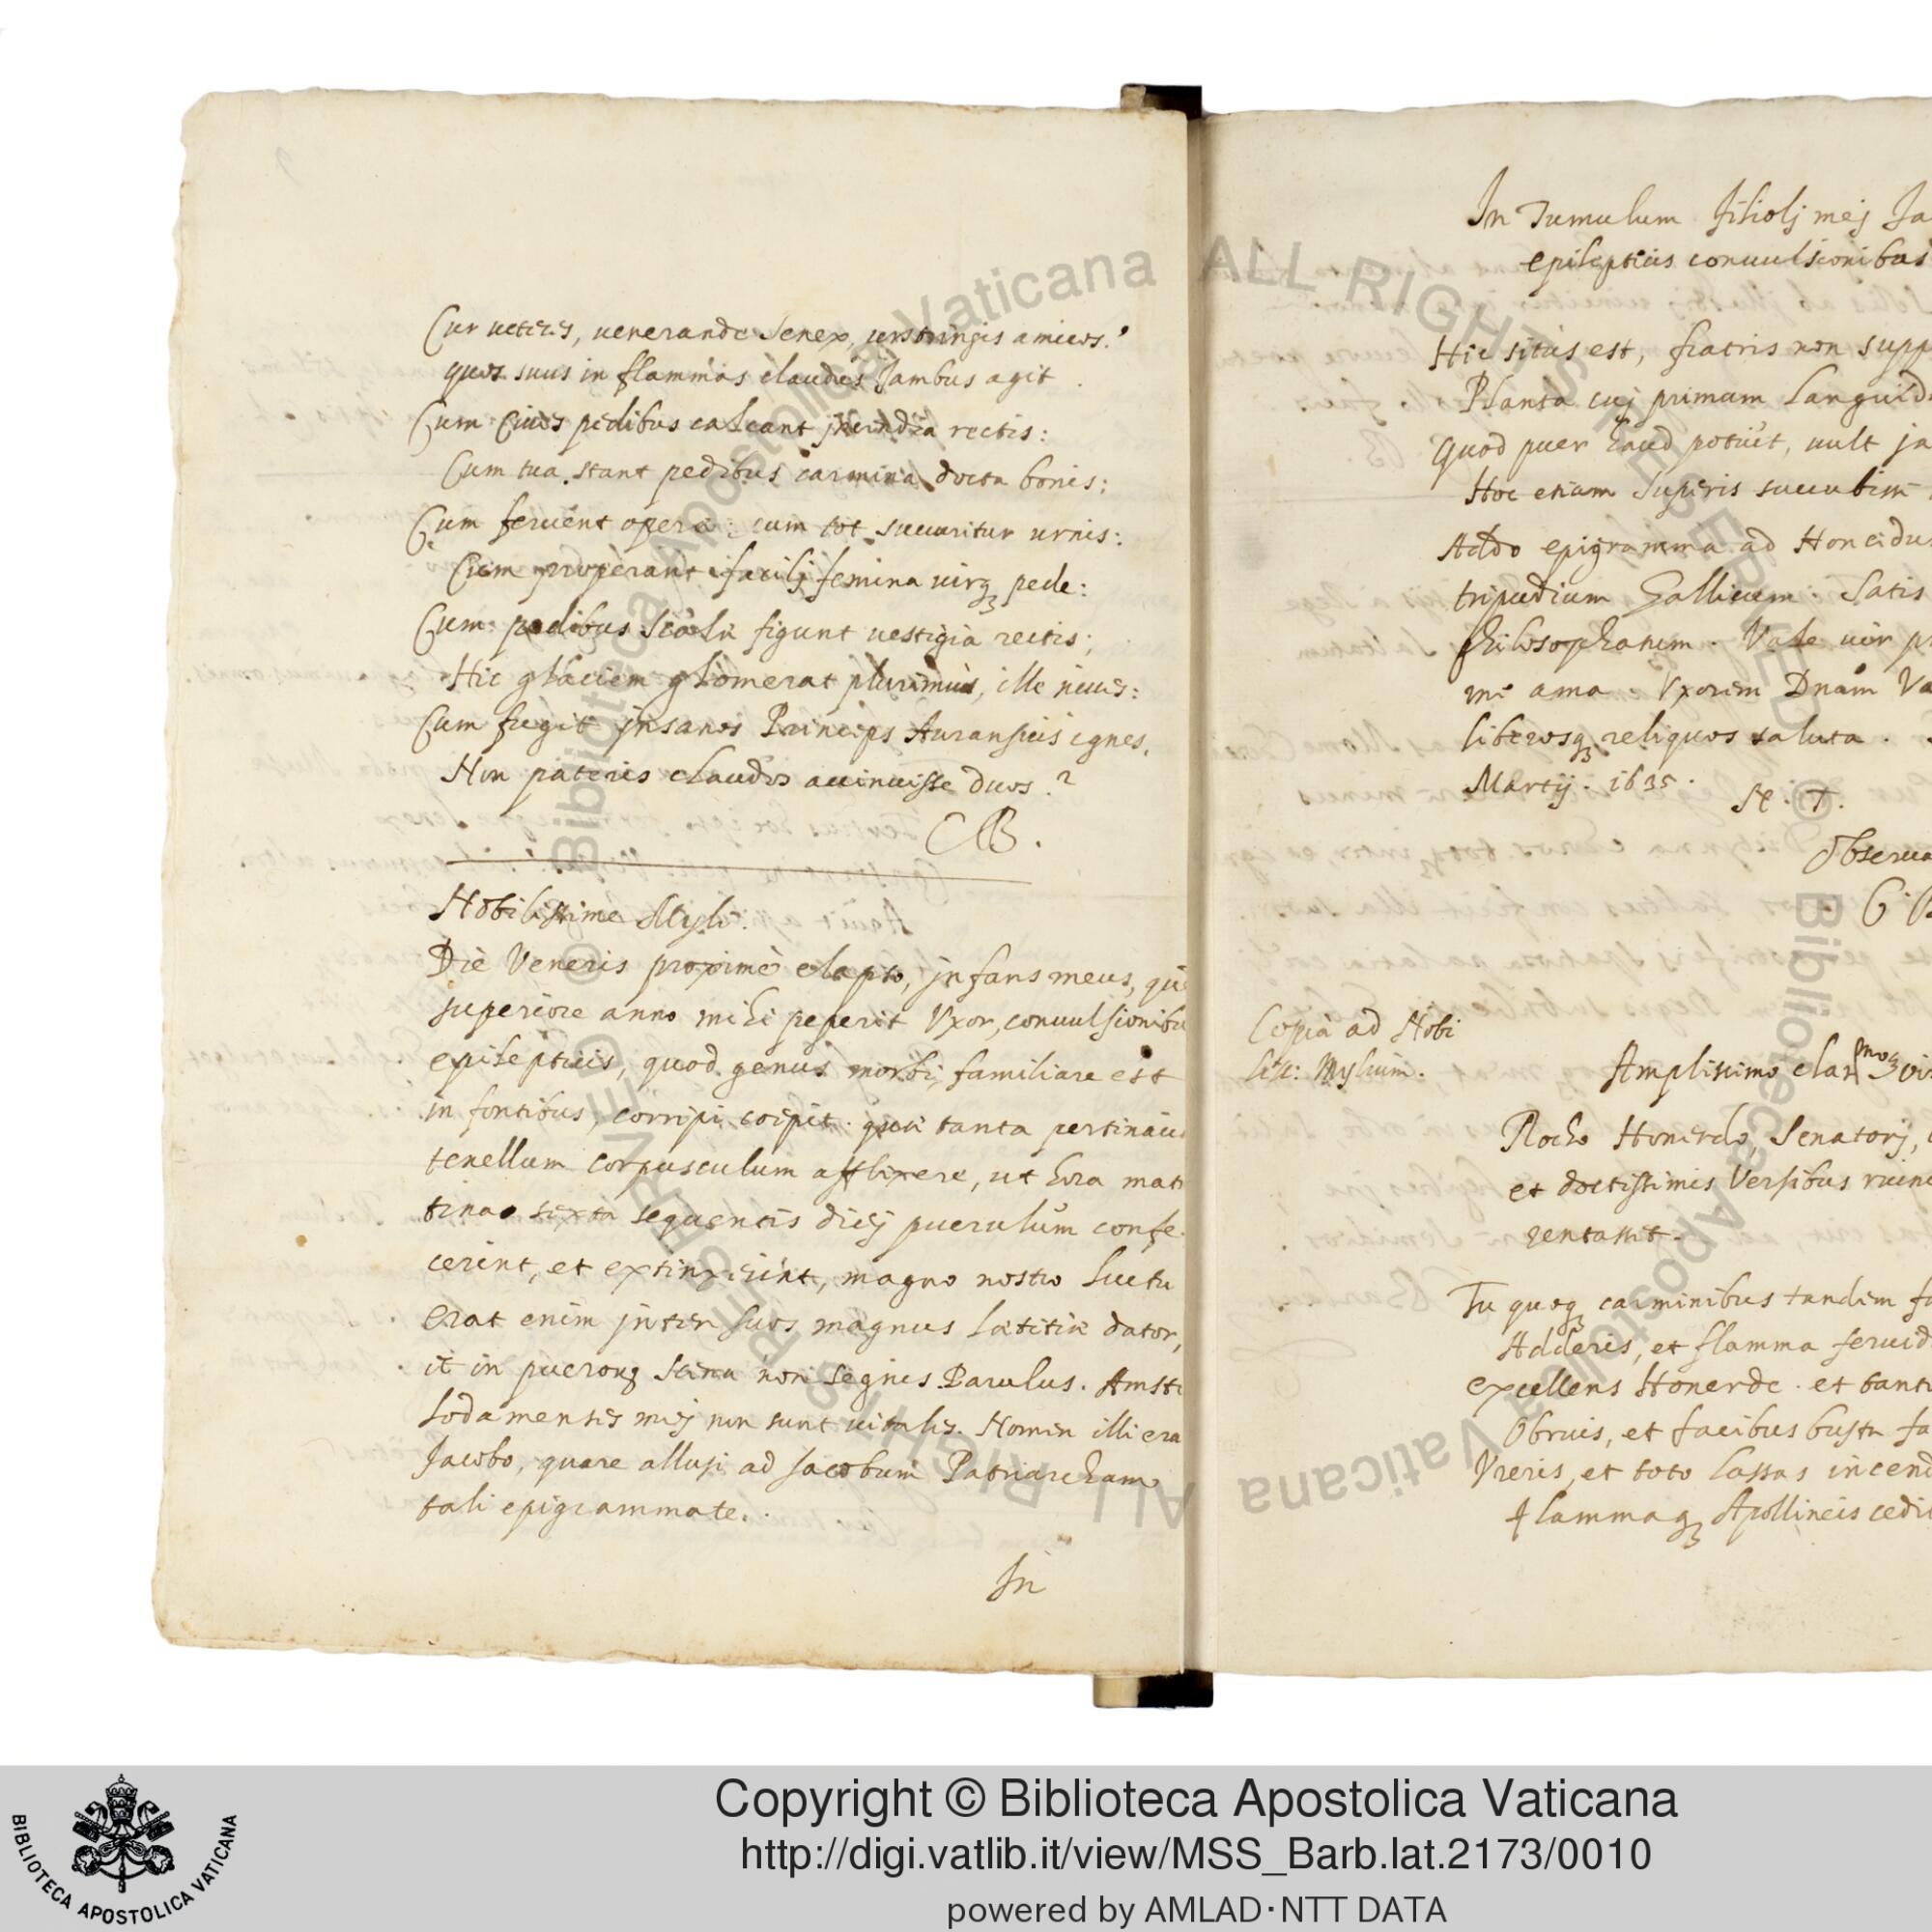 Cur veteres, venerande Senex, perstringis amicos?
quos suus in flammas claudus Jambus agit.
Cum Cives pedibus calcant incendia rectis:
Cum tua stant pedibus carmina docta bonis:
Cum fervent opera: cum tot succuritur urnis:
Cum properant facili femina virq pede:
Cum pedibus Scalae figunt vestigia rectis;
Hic glaciem glomerat plurimus, ille nives:
Cum fugit jnsanos Princips Auransicus ignes,
Non pateris claudos accinuisse duos?
CB.
Nobilissime Myli.
Die Veneris proximè elapso, jnfans meus, que
superiore anno mihi peperit Vxor, convulsionibu
epilepticis, quod genus morbi familiare est
in fontibus, corripi coepit. quae tanta pertinaci
tenellum corpusculum afflixere, ut hora matu
tina sexta sequentis diej puerulum confe
cerint, et extinxerint, magno nostro luctu
erat enim jnter suos magnus laetitiae dator,
et in puerorum scena non segnis Parulus. Amste
lodamenses mej non sunt vitales. Nomen illi era
Jacobo, quare allusi ad Jacobum Patriarcham
tali epigrammate.
In
In Tumulum filiolj mej Ja
epilepticis convulsionibus
Hic situs est, fratris non supp
Planta cuj primum languid
Quod puer haud potuit, vult ja
Hoc etiam Superis succubim
Addo epigramma ad Honerdu
tripudium Gallicum. Satis
philosophatum. Vale vir pr
me ama. Vxorem Dnam Va
liberosq reliquos saluta.
Martij. 1635.
T.
Observa
C B
Copia ad Nobi
liss: Mylium.
Amplissimo clarmoq vir
Rocho Honerdo, Senatorj,
et doctissimis Versibus ruin
rentavit.
Tu quoq carminibus tandem fa
Adderis, et flamma fervid
excellens Honerde. et tant
Obruis, et facibus busta fa
Vreris, et toto lassas incend
Flammaq Apollineis cedit
© Biblioteca Apostolica Vaticana ALL RIGHTS RESERVED © Biblioteca Apostolica Vaticana ALL RIGHTS RESERVED
Copyright © Biblioteca Apostolica Vaticana
http://digi.vatlib.it/view/MSS_Barb.lat.2173/0010
powered by AMLAD·NTT DATA
BIBLIOTECA APOSTOLICA VATICANA